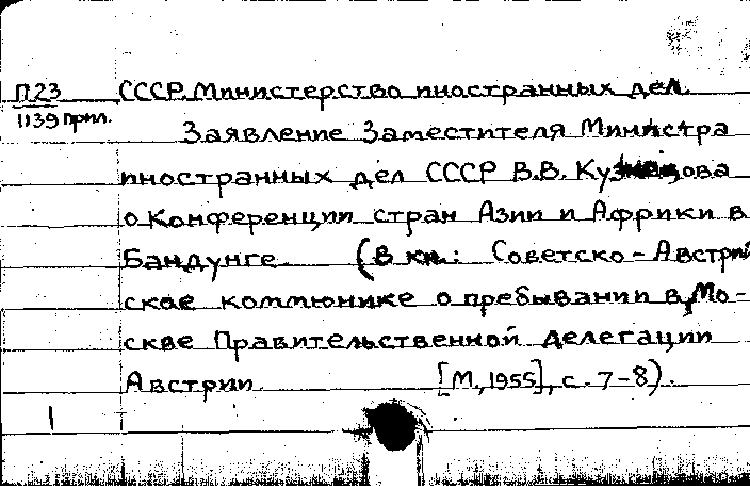 П23 СССР. Министерство иностранных дел.
1139 прил. Заявление Заместителя Министра
иностранных дел СССР В.В. Кузнецова
о Конференции стран Азии и Африки в
Бандунге (В кн.: Советско-Австрий
ское коммюнике о пребывании в Мо-
скве Правительственной делегации
Австрии [М., 1955], с. 7-8).
1